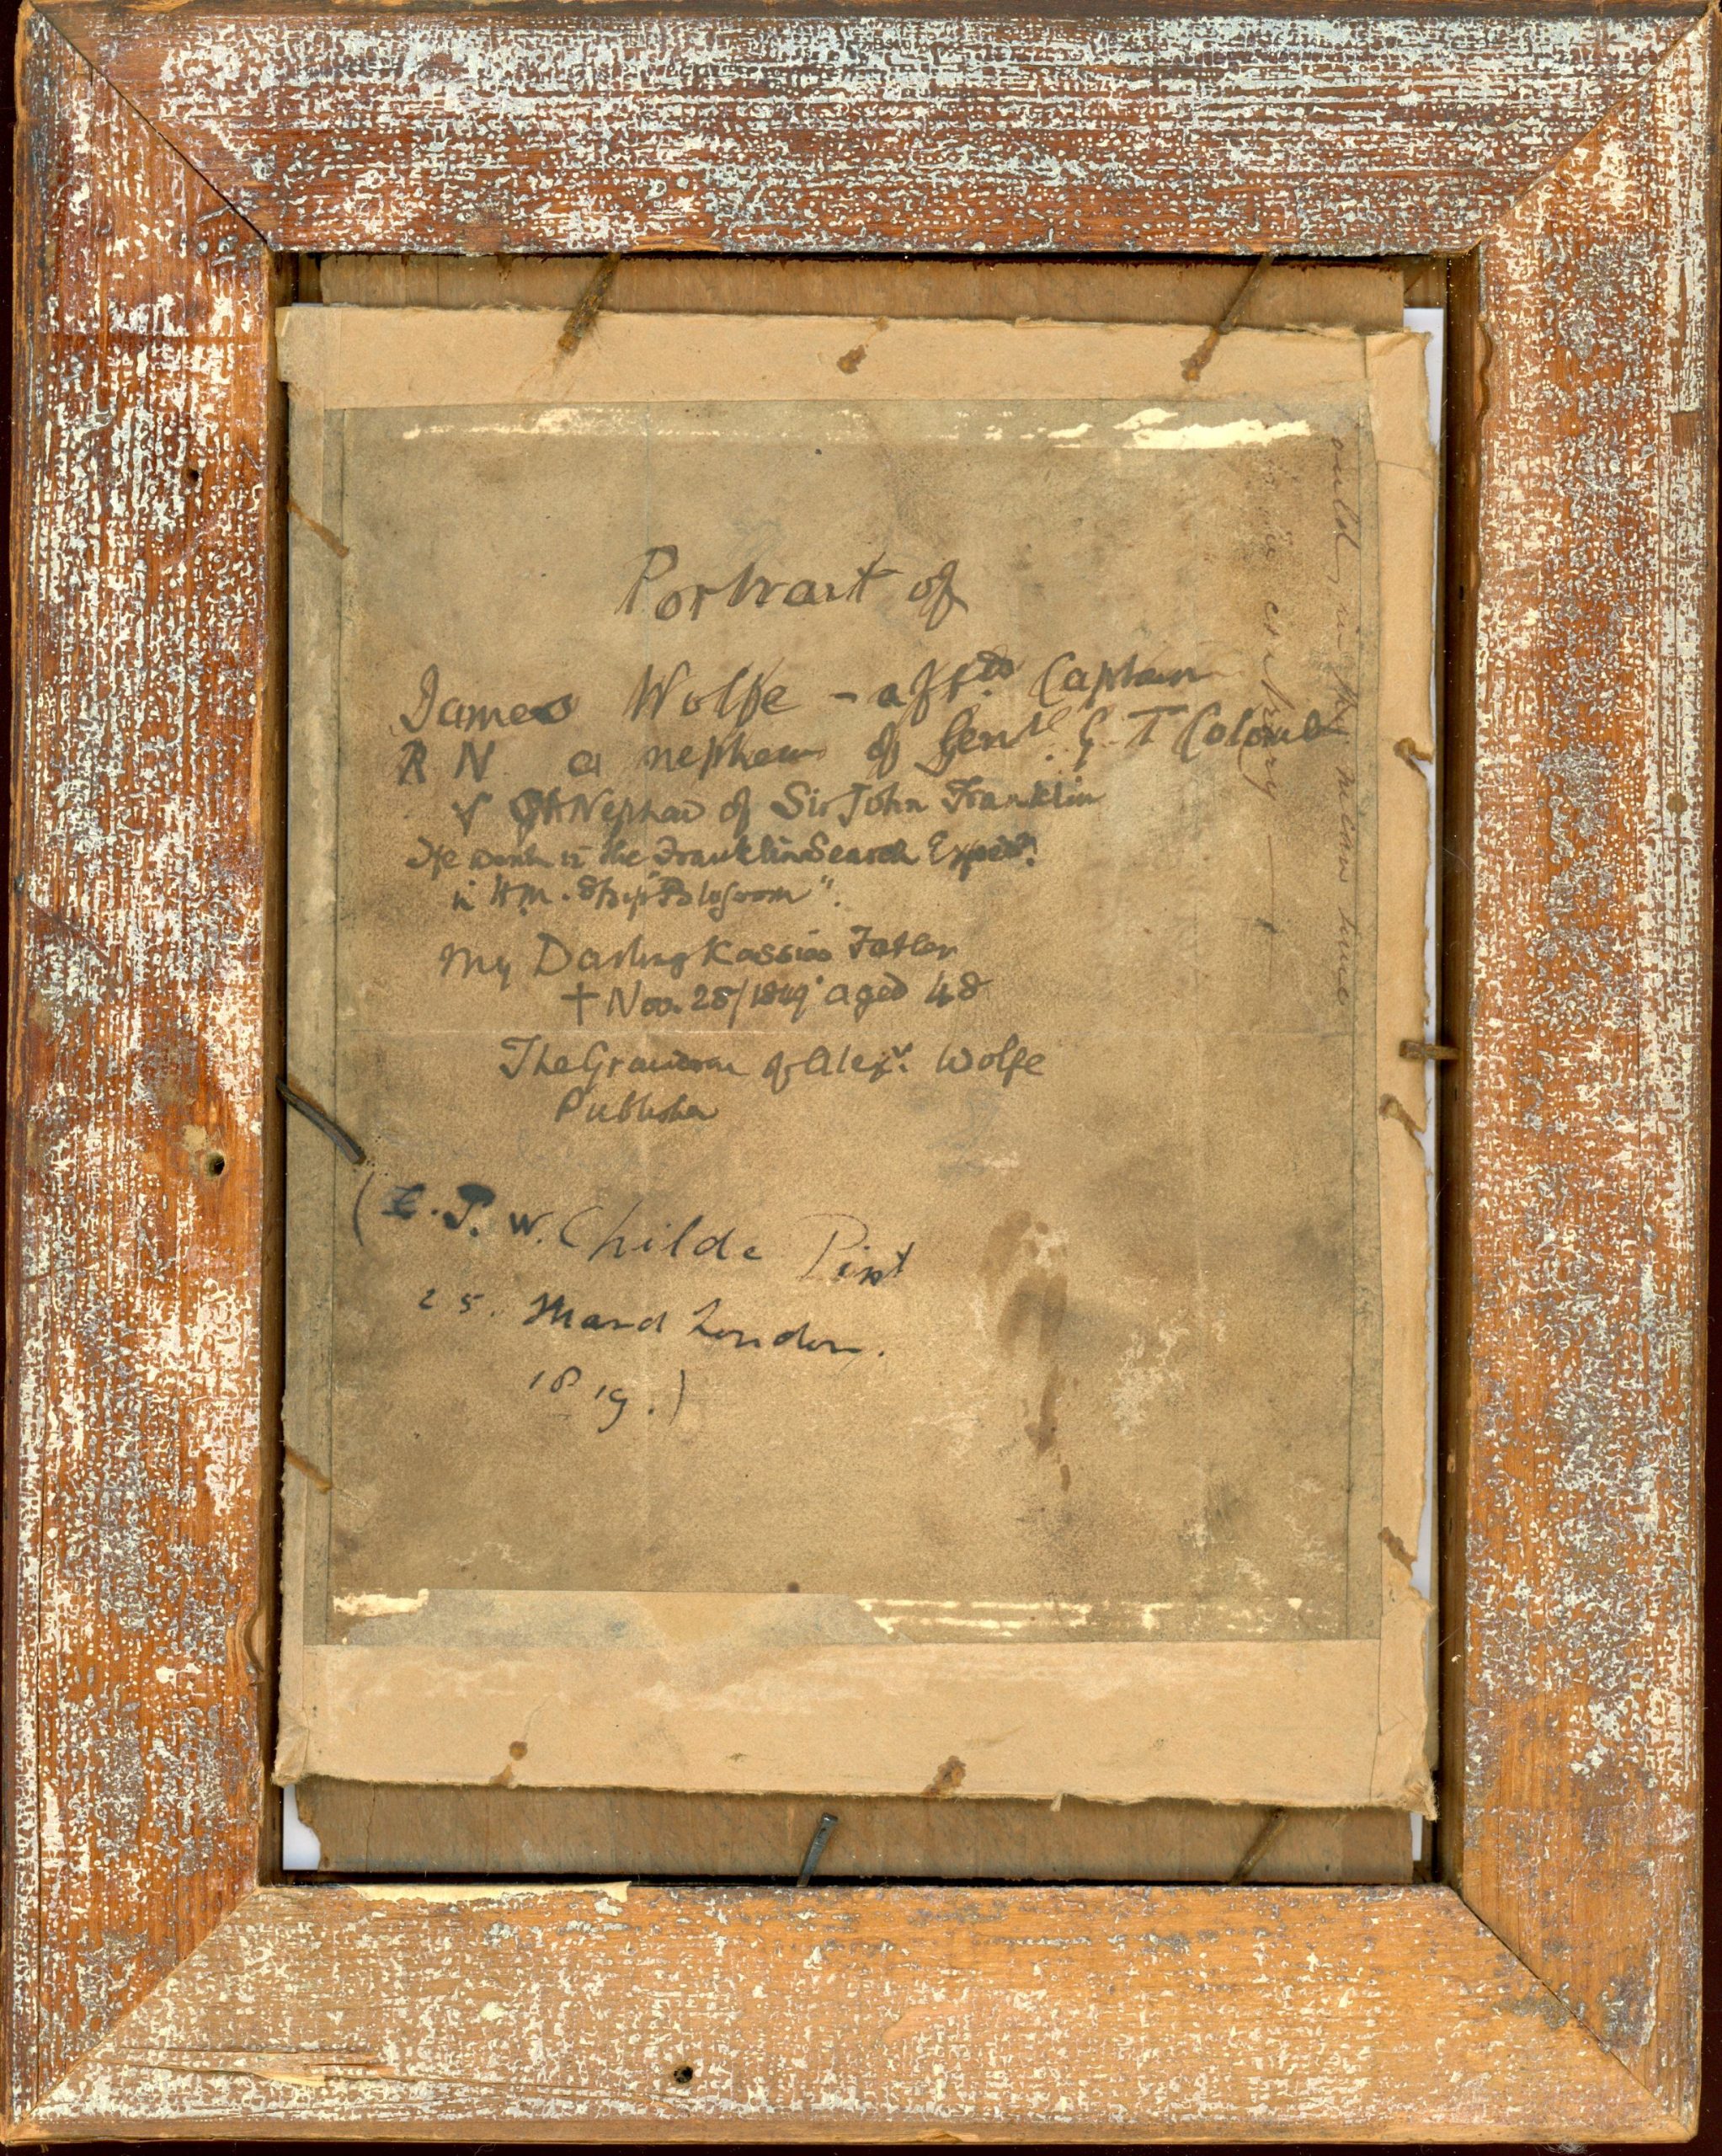 Portrait of
James Wolfe - aftds Captain
R N a nephew of Genl. G. T Colomb
& Nephew of Sir John Franklin
He went in the Franklin Search Expedn.
in H.M. Ship "Blossom".
My Darling Kassies Father
† Nov. 25/1849 aged 48
The Grandson of Alexr. Wolfe
Publisher
(E. P. W. Childe Pinxt
25. Strand London.
1819.)
in the mean time